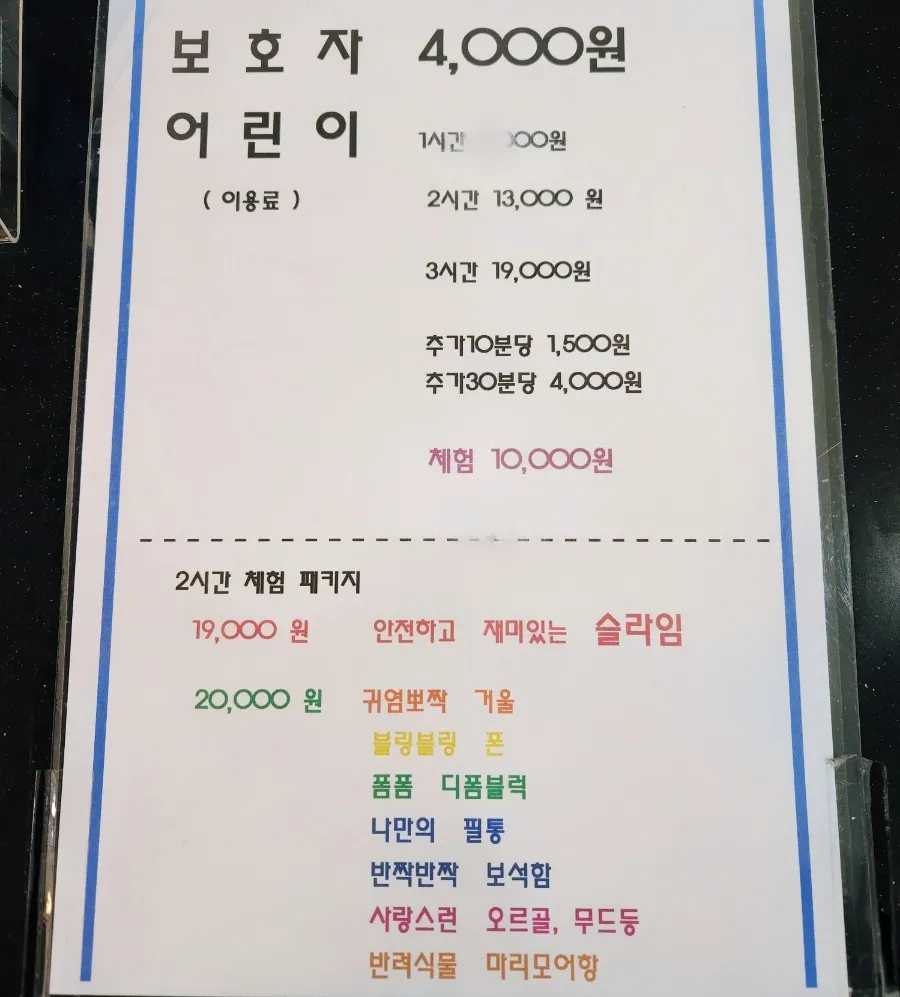 보호자 4,000원
어린이 1시간
(이용료) 2시간 13,000 원
3시간 19,000원
추가10분당 1,500원
추가30분당 4,000원
체험 10,000원
2시간 체험 패키지
19,000 원 안전하고 재미있는 슬라임
20,000 원 귀염뽀짝 거울
블링블링 폰
폼폼 디폼블럭
나만의 필통
반짝반짝 보석함
사랑스런 오르골, 무드등
반려식물 마리모어항